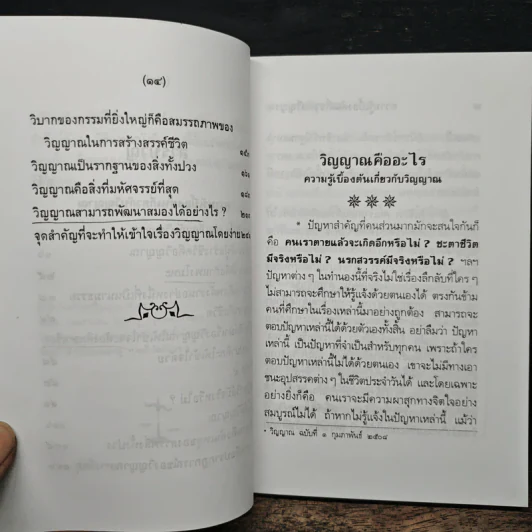 (๑๔)
วิบากของกรรมที่ยิ่งใหญ่ก็คือสมรรถภาพของ
วิญญาณในการสร้างสรรค์ชีวิต
วิญญาณเป็นรากฐานของสิ่งทั้งปวง
วิญญาณคือสิ่งที่มหัศจรรย์ที่สุด
วิญญาณสามารถพัฒนาสมองได้อย่างไร ?
จุดสำคัญที่จะทำให้เข้าใจเรื่องวิญญาณโดยง่าย
วิญญาณคืออะไร
ความรู้เบื้องต้นเกี่ยวกับวิญญาณ
* ปัญหาสำคัญที่คนส่วนมากมักจะสนใจกันก็
คือ คนเราตายแล้วจะเกิดอีกหรือไม่ ? ชะตาชีวิต
มีจริงหรือไม่ ? นรกสวรรค์มีจริงหรือไม่ ? ฯลฯ
ปัญหาต่าง ๆ ในทำนองนี้ที่จริงไม่ใช่เรื่องลึกลับที่ใคร ๆ
ไม่สามารถจะศึกษาให้รู้แจ้งด้วยตนเองได้ ตรงกันข้าม
คนที่ศึกษาในเรื่องเหล่านี้มาอย่างถูกต้อง สามารถจะ
ตอบปัญหาเหล่านี้ได้ด้วยตัวเองทั้งสิ้น อย่าลืมว่า ปัญหา
เหล่านี้ เป็นปัญหาที่จำเป็นสำหรับทุกคน เพราะถ้าใคร
ตอบปัญหาเหล่านี้ไม่ได้ด้วยตนเอง เขาจะไม่มีทางเอา
ชนะอุปสรรคต่าง ๆ ในชีวิตประจำวันได้ และโดยเฉพาะ
อย่างยิ่งก็คือ คนเราจะมีความผาสุกทางจิตใจอย่าง
สมบูรณ์ไม่ได้ ถ้าหากไม่รู้แจ้งในปัญหาเหล่านี้ แม้ว่า
* วิญญาณ ฉบับที่ ๑ กุมภาพันธ์ ๒๕๐๘